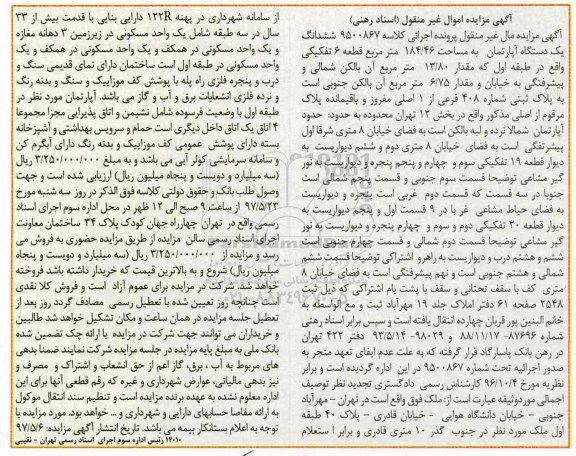 آگهی مزایده اموال غیر منقول (اسناد رهنی)
آگهی مزایده مال غیر منقول پرونده اجرائی کلاسه ۹۵۰۰۸۶۷ ششدانگ
یک دستگاه آپارتمان به مساحت ۱۸۴/۴۶ متر مربع قطعه ۶ تفکیکی
واقع در طبقه اول که مقدار ۱۳/۸۰ متر مربع آن بالکن شمالی و
پیشرفتگی به خیابان و مقدار ۶/۷۵ متر مربع آن بالکن جنوبی است
به پلاک ثبتی شماره ۴۰۸ فرعی از ۱ اصلی مفروز و باقیمانده پلاک
مرقوم از اصلی مذکور واقع در بخش ۱۲ تهران محدوده به حدود: حدود
آپارتمان شمالا نرده و لبه بالکن است به فضای خیابان ۸ متری شرقا اول
پیشرفتگی است به فضای خیابان ۸ متری دوم و ششم دیواریست به
دیوار قطعه ۱۹ تفکیکی سوم و چهارم و پنجم پنجره و دیواریست به نور
گیر مشاعی توضیحا قسمت سوم جنوبی و قسمت پنجم شمالی است
جنوبا در سه قسمت که قسمت دوم غربی است پنجره و دیواریست
به فضای حیاط مشاعی غربا در ۹ قسمت اول و پنجم دیواریست به
دیوار قطعه ۲۰ تفکیکی دوم و سوم و چهارم پنجره و دیواریست به نور
گیر مشاعی توضیحا قسمت دوم شمالی و قسمت چهارم جنوبی است
ششم و هشتم درب و دیواریست به راهرو اشتراکی توضیحا قسمت ششم
شمالی و هشتم جنوبی است و نهم پیشرفتگی است به فضای خیابان ۸
متری کف با سقف تحتانی و سقف با پشت بام اشتراکی که ذیل ثبت
۲۵۴۸ صفحه ۶۱ دفتر املاک جلد ۱۹ مهرآباد ثبت و مع الواسطه به
خانم البنین پور قربان چهارده انتقال یافته است و سپس برابر اسناد رهنی
شماره ۸۷۶۹۶- ۸۸/۱۱/۱۷ و ۹۸۰۲۹- ۹۳/۵/۱۴ دفتر ۴۲۲ تهران
در رهن بانک پاسارگاد قرار گرفته که به علت عدم ایفای تعهد منجر به
صدور اجرائیه تحت شماره ۹۵۰۰۸۶۷ در این اداره گردیده است و برابر
نظریه مورخ ۹۶/۱۰/۴ کارشناس رسمی دادگستری تجدید نظر توصیف
اجمالی مورد وثیقه عبارت است از: ملک فوق واقع است در تهران – مهرآباد
جنوبی – خیابان دانشگاه هوایی - خیابان قادری – پلاک ۴۰ طبقه
اول ملک مورد نظر در جنوب گذر ۱۰ متری قادری و برابر ا ستعلام
از سامانه شهرداری در پهنه ۱۲۲R دارایی بنایی با قدمت بیش از ۳۳
سال در سه طبقه شامل یک واحد مسکونی در زیرزمین ۳ دهانه مغازه
و یک واحد مسکونی در همکف و یک واحد مسکونی در همکف و یک
واحد مسکونی در طبقه اول است ساختمان دارای نمای قدیمی سنگ و
درب و پنجره فلزی راه پله با پوشش کف موزاییک و سنگ و بدنه رنگ
و نرده فلزی انشعابات برق و آب و گاز می باشد. آپارتمان مورد نظر در
طبقه اول با وضعیت فرسوده شامل نشیمن و اتاق پذیرایی مجزا مجموعا
۴ اتاق یک اتاق داخل دیگری است حمام و سرویس بهداشتی و آشپزخانه
بسته دارای پوشش عمومی کف موزاییک و بدنه رنگ دارای آبگرم کن
و سامانه سرمایشی کولر آبی می باشد و به مبلغ ۳/۲۵۰/۰۰۰/۰۰۰ ریال
(سه میلیارد و دویست و پنجاه میلیون ریال) ارزیابی شده است و جهت
وصول طلب بانک و حقوق دولتی کلاسه فوق الذکر در روز سه شنبه مورخ
۹۷/۵/۲۳ از ساعت ۹ صبح الی ۱۲ ظهر در محل اداره سوم اجرای اسناد
رسمی واقع در تهران چهارراه جهان کودک پلاک ۳۴ ساختمان معاونت
اجرای اسناد رسمی سالن مزایده از طریق مزایده حضوری به فروش می
رسد و مزایده از ۳/۲۵۰/۰۰۰/۰۰۰ ریال (سه میلیارد و دویست و پنجاه
میلیون ریال) شروع و به بالاترین قیمت که خریدار داشته باشد فروخته
خواهد شد. شرکت در مزایده برای عموم آزاد است و فروش کلا نقدی
است چنانچه روز تعیین شده با تعطیل رسمی مصادف گردد روز بعد از
تعطیل جلسه مزایده در همان ساعت و مکان تشکیل خواهد شد طالبین
و خریداران می توانند جهت شرکت در مزایده با ارائه چک تضمین شده
بانک ملی به مبلغ پایه مزایده در جلسه مزایده شرکت نمایند ضمنا بدهی
های مربوط به آب ، برق، گاز اعم از حق انشعاب و اشتراک و مصرف و
نیز بدهی مالیاتی، عوارض شهرداری و غیره که رقم قطعی آنها برای این
اداره معلوم نشده به عهده برنده مزایده است و تنظیم سند انتقال موکول
به ارائه مفاصا حسابهای دارایی و شهرداری و ... خواهد بود. مورد مزایده با
توجه به اعلام بستانکار بیمه می باشد. تاریخ انتشار آگهی مزایده: ۹۷/۵/۶
۱۴۰۱۰ رئیس اداره سوم اجرای اسناد رسمی تهران – نقیبی